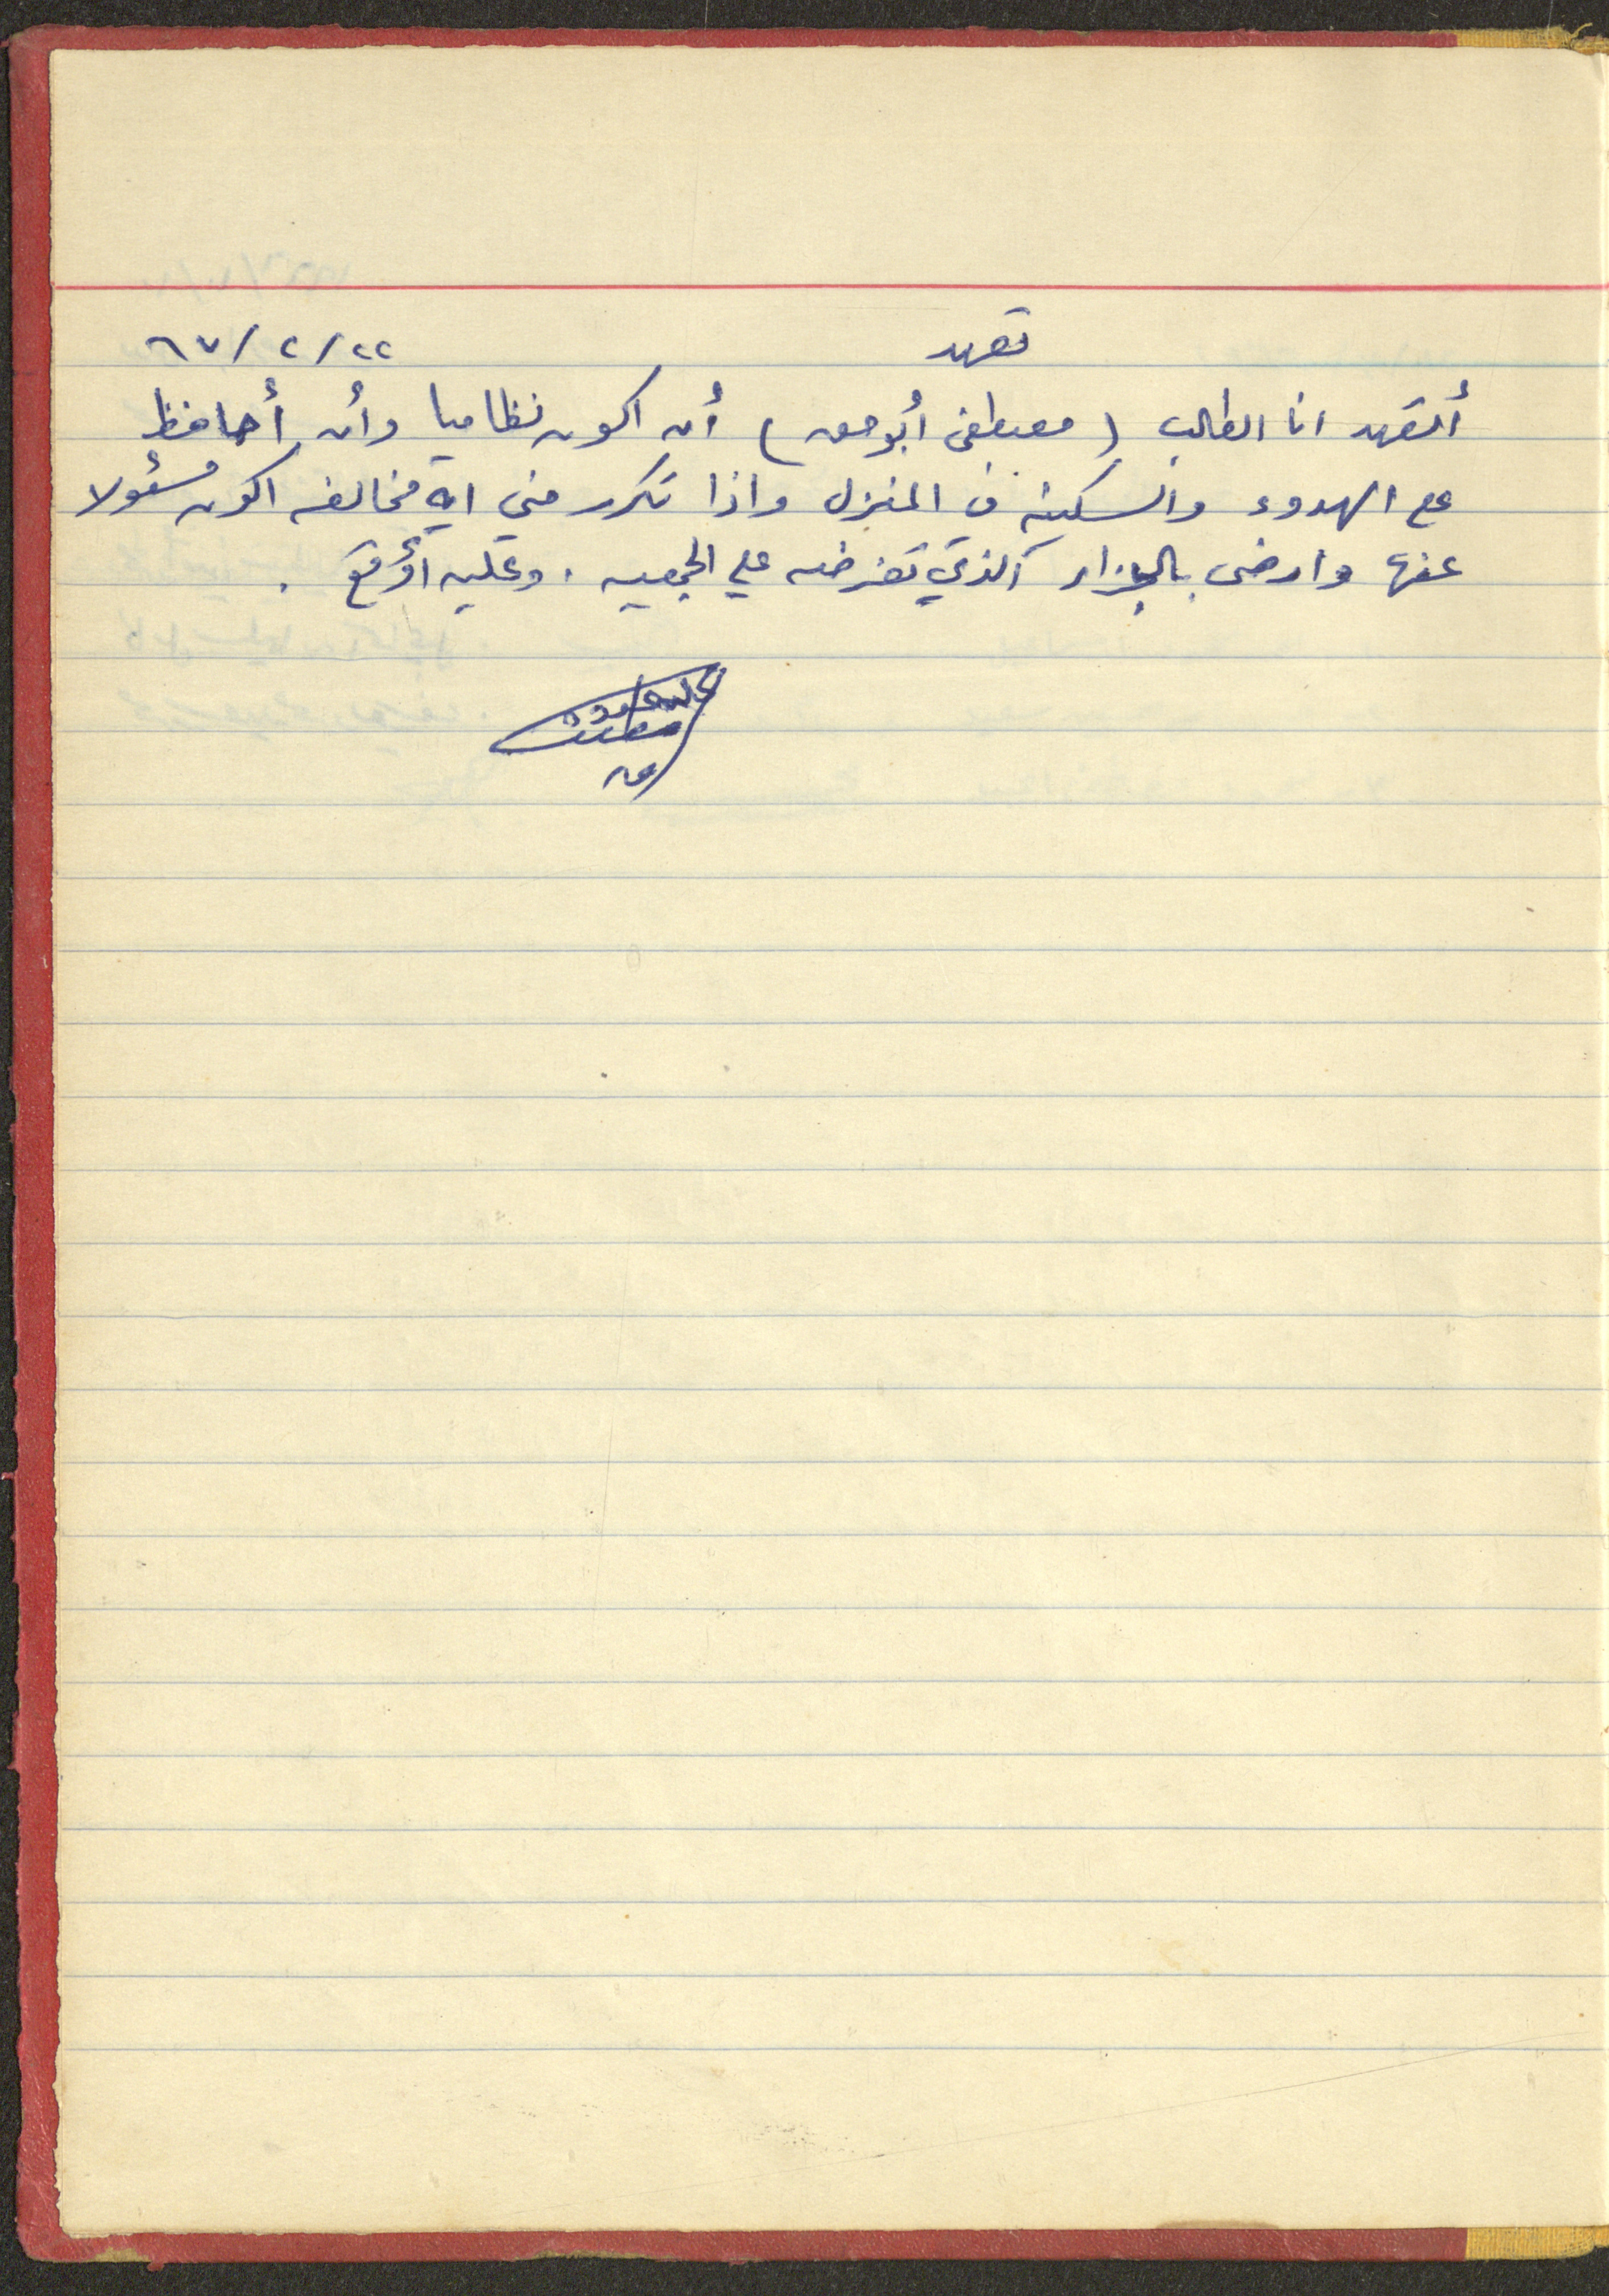 تعهد ٢٢/٢/٦٧
أتعهد انا الطالب (مصطفى أبو معه) أن اكون نظاميا وأن أحافظ
على الهدوء والسكينه في المنزل واذا تكرر مني ايه مخالفه اكون مسئولا
عنها وارضى بالجزاء الذي تفرضه علي الجمعيه . وعليه أوقع .